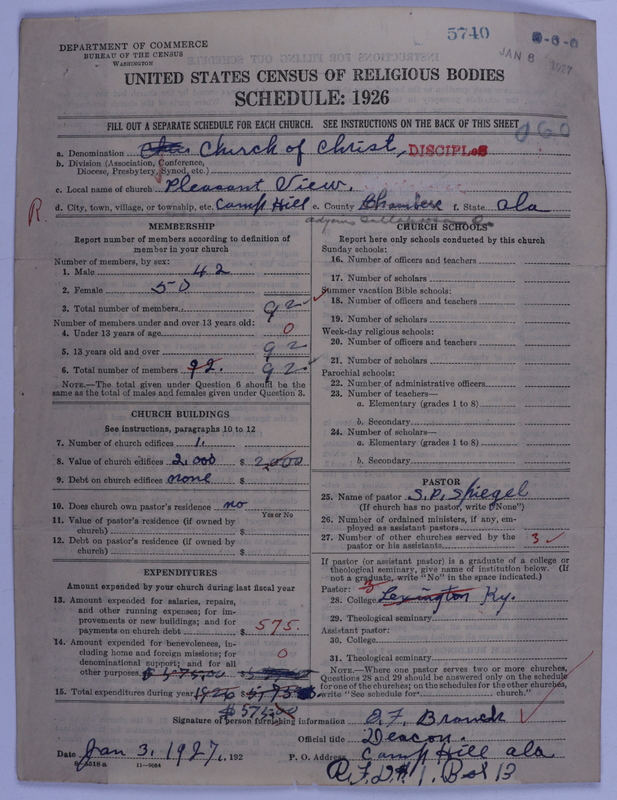 5740
JAN 8 1927
DEPARTMENT OF COMMERCE
BUREAU OF THE CENSUS
WASHINGTON
UNITED STATES CENSUS OF RELIGIOUS BODIES
SCHEDULE: 1926
FILL OUT A SEPARATE SCHEDULE FOR EACH CHURCH. SEE INSTRUCTIONS ON THE BACK OF THIS SHEET
060
a. Denomination Church of Christ, DISCIPLES
b. Division (Association, Conference,
Diocese, Presbytery, Synod, etc.)
c. Local name of church Pleasant View.
d. City, town, village, or township, etc. Camp Hill e. County Chambers f. State Ala
R.
MEMBERSHIP
Report number of members according to definition of
member in your church
Number of members, by sex:
1. Male 42
2. Female 50
3. Total number of members 92
Number of members under and over 13 years old:
4. Under 13 years of age 0
5. 13 years old and over 92
6. Total number of members 92. 92
NOTE.—The total given under Question 6 should be the
same as the total of males and females given under Question 3.
CHURCH BUILDINGS
See instructions, paragraphs 10 to 12
7. Number of church edifices 1.
8. Value of church edifices 2,000 $ 2,000
9. Debt on church edifices none $
10. Does church own pastor's residence no
Yes or No
11. Value of pastor's residence (if owned by
church) $
12. Debt on pastor's residence (if owned by
church) $
EXPENDITURES
Amount expended by your church during last fiscal year
13. Amount expended for salaries, repairs,
and other running expenses; for im-
provements or new buildings; and for
payments on church debt $ 575.
14. Amount expended for benevolences, in-
cluding home and foreign missions; for
denominational support; and for all
other purposes. $ 575,00 0
15. Total expenditures during year 1926 $
$ 575.00
CHURCH SCHOOLS
Report here only schools conducted by this church
Sunday schools:
16. Number of officers and teachers
17. Number of scholars
Summer vacation Bible schools:
18. Number of officers and teachers
19. Number of scholars
Week-day religious schools:
20. Number of officers and teachers
21. Number of scholars
Parochial schools:
22. Number of administrative officers
23. Number of teachers—
a. Elementary (grades 1 to 8)
b. Secondary
24. Number of scholars—
a. Elementary (grades 1 to 8)
b. Secondary
PASTOR
25. Name of pastor S. P. Spiegel
(If church has no pastor, write "None")
26. Number of ordained ministers, if any, em-
ployed as assistant pastors
27. Number of other churches served by the
pastor or his assistants 3
If pastor (or assistant pastor) is a graduate of a college or
theological seminary, give name of institution below. (If
not a graduate, write "No" in the space indicated.)
Pastor:
28. College Lexington Ky.
29. Theological seminary
Assistant pastor:
30. College
31. Theological seminary
NOTE.—Where one pastor serves two or more churches,
Questions 28 and 29 should be answered only on the schedule
for one of the churches; on the schedules for the other churches,
write "See schedule for church."
Signature of person furnishing information E. F. Branch
Official title Deacon.
Date Jan 3, 1927, 192 P. O. Address Camp Hill Ala
11—9084
R.F.D. # 1, Box 13